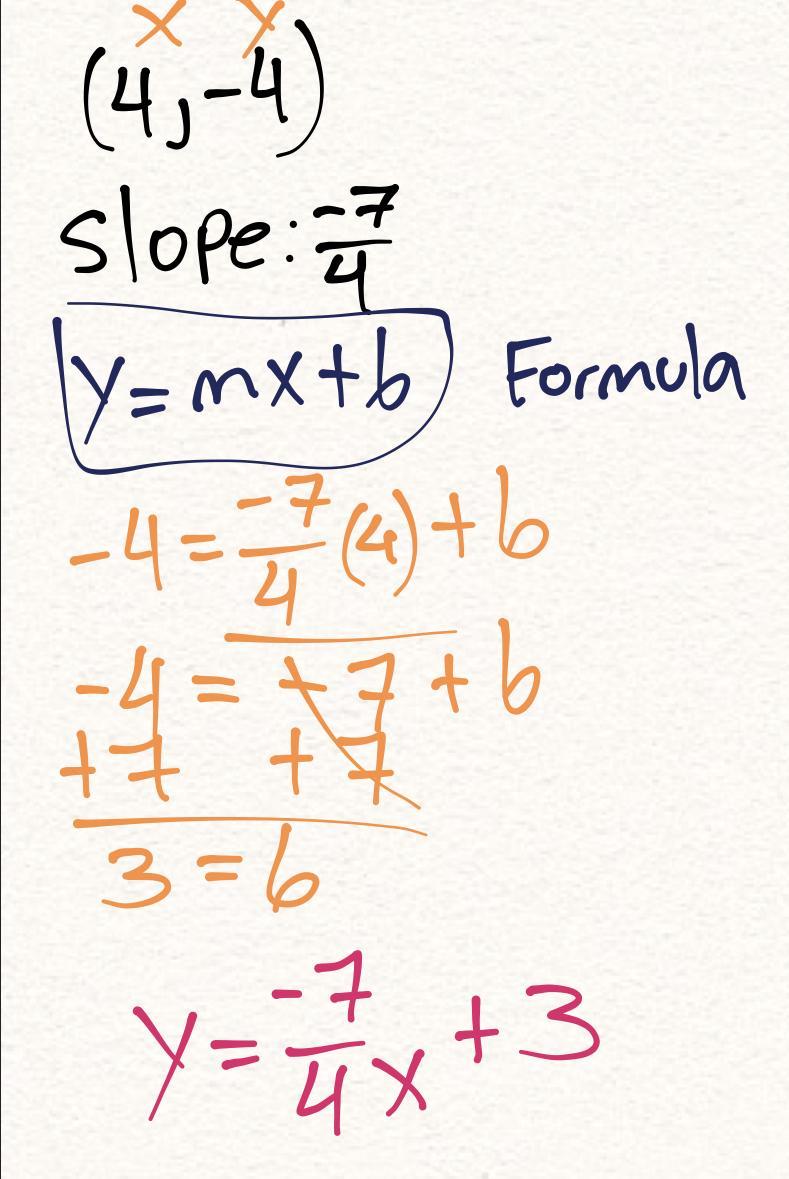 x y
(4,-4)
slope: -7/4
y = mx+b Formula
-4 = -7/4 (4) + b
-4 = -7 + b
+7 +7
3 = b
y = -7/4 x + 3